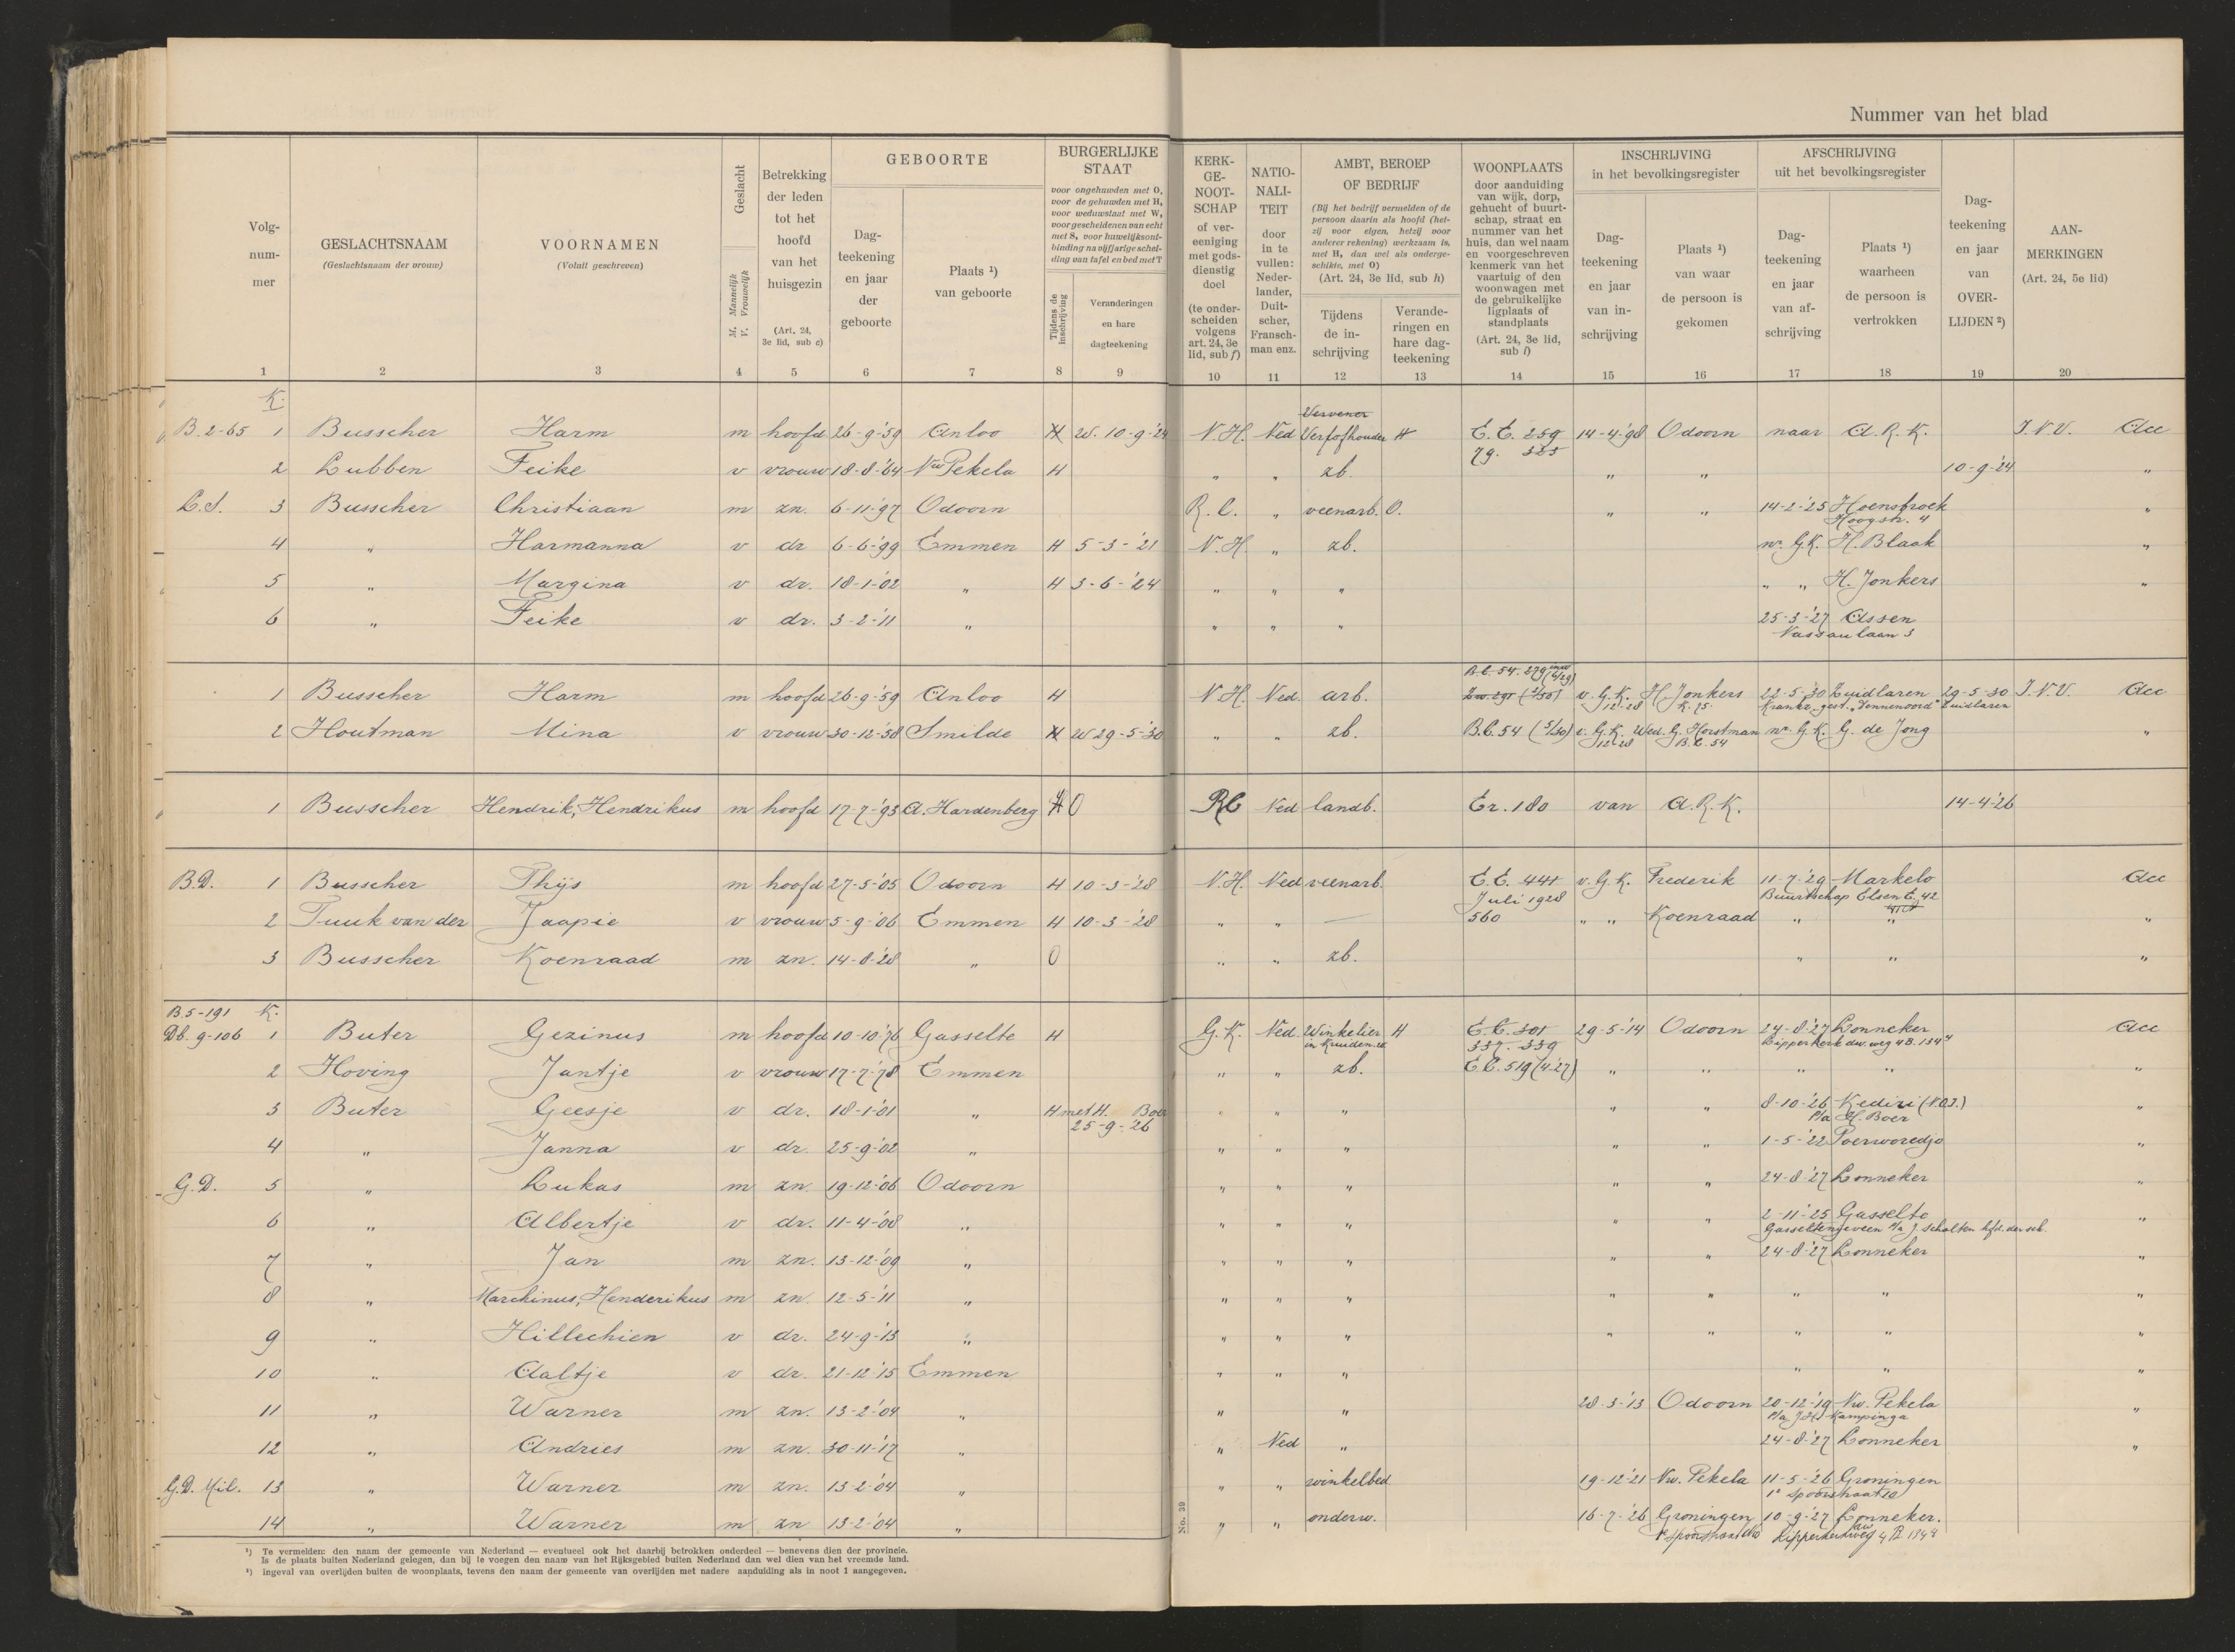 Nummer van het blad
Volg-
num-
mer
GESLACHTSNAAM
(Geslachtsnaam der vrouw)
VOORNAMEN
(Voluit geschreven)
Geslacht
M. Mannelijk
V. Vrouwelijk
Betrekking
der leden
tot het
hoofd
van het
huisgezin
(Art. 24,
3e lid, sub c)
GEBOORTE
Dag-
teekening
en jaar
der
geboorte
Plaats ¹)
van geboorte
BURGERLIJKE
STAAT
voor ongehuwden met O,
voor de gehuwden met H,
voor weduwstaat met W,
voor gescheidenen van echt
met S, voor huwelijksont-
binding na vijfjarige schei-
ding van tafel en bed met T
Tijdens de
inschrijving
Veranderingen
en hare
dagteekening
KERK-
GE-
NOOT-
SCHAP
of ver-
eeniging
met gods-
dienstig
doel
(te onder-
scheiden
volgens
art. 24, 3e
lid, sub f)
NATIO-
NALI-
TEIT
door
in te
vullen:
Neder-
lander,
Duit-
scher,
Fransch-
man enz.
AMBT, BEROEP
OF BEDRIJF
(Bij het bedrijf vermelden of de
persoon daarin als hoofd (het-
zij voor eigen, hetzij voor
anderer rekening) werkzaam is,
met H, dan wel als onderge-
schikte, met O)
(Art. 24, 3e lid, sub h)
Tijdens
de in-
schrijving
Verande-
ringen en
hare dag-
teekening
WOONPLAATS
door aanduiding
van wijk, dorp,
gehucht of buurt-
schap, straat en
nummer van het
huis, dan wel naam
en voorgeschreven
kenmerk van het
vaartuig of den
woonwagen met
de gebruikelijke
ligplaats of
standplaats
(Art. 24, 3e lid,
sub i)
INSCHRIJVING
in het bevolkingsregister
Dag-
teekening
en jaar
van in-
schrijving
Plaats ¹)
van waar
de persoon is
gekomen
AFSCHRIJVING
uit het bevolkingsregister
Dag-
teekening
en jaar
van af-
schrijving
Plaats ¹)
waarheen
de persoon is
vertrokken
Dag-
teekening
en jaar
van
OVER-
LIJDEN ²)
AAN-
MERKINGEN
(Art. 24, 5e lid)
1 2 3 4 5 6 7 8 9 10 11 12 13 14 15 16 17 18 19 20
K.
Vervener
B. 2-65 1 Busscher Harm m hoofd 26-9-'59 Anloo H W. 10-9-'24 N.H. Ned Verlofhouder H E.E. 259 14-4-'98 Odoorn naar A.R.K. I.N.V. Acc
79. 323
2 Lubben Feike v vrouw 18-8-'64 Nw Pekela H " " zb. " " 10-9-'24 "
L.S. 3 Busscher Christiaan m zn. 6-11-'97 Odoorn R.C. " veenarb. O. " " 14-2-'25 Hoensbroek "
Hoogstr. 4
4 " Harmanna v dr 6-6-'99 Emmen H 5-3-'21 N.H " zb. nr. G.K. H. Blaak "
5 " Margina v dr. 18-1-'02 " H 3-6-'24 " " " " " H. Jonkers "
6 " Feike v dr. 3-2-'11 " " " " 25-3-'27 Assen
Nassaulaan 3
B.C. 54. 279
1 Busscher Harm m hoofd 26-9-'59 Anloo H N.H. Ned. arb. v. G.K. H. Jonkers 22-5-'30 Zuidlaren 29-5-30 I.N.V. Acc
12-'28 K. 75. Krankz. gest. "Dennenoord" Zuidlaren
2 Houtman Mina v vrouw 30-12-'58 Smilde H W 29-5-'30 " " zb. B.C. 54 (5/30) v. G.K. Wed. G. Horstman nr. G.K. G. de Jong "
12-28 B.C. 54
1 Busscher Hendrik, Hendrikus m hoofd 17-7-'93 A. Hardenberg H O RC Ned landb. Er. 180 van A.R.K. 14-4-'26
B.D. 1 Busscher Thijs m hoofd 27-5-'05 Odoorn H 10-3-'28 N.H. Ned veenarb. E.E. 441 v. G.K. Frederik 11-7-'29 Markelo Acc
Juli 1928 Buurtschap Elsen E. 42
2 Tuuk van der Jaapie v vrouw 5-9-'06 Emmen H 10-3-'28 " " — 560 " " Koenraad " " "
3 Busscher Koenraad m zn. 14-8-'28 " O " " zb. " " "
B 5-191 K.
Db. 9-106 1 Buter Gezinus m hoofd 10-10-'76 Gasselte H G.K. Ned. Winkelier H E.E. 301 29-5-'14 Odoorn 24-8-'27 Lonneker Acc
in Kruiden. 337. 339 Lipperkerk dw. weg 4B. 134
2 Hoving Jantje v vrouw 17-7-'78 Emmen " " zb. E.E. 519 (4.27) " " " " "
3 Buter Geesje v dr. 18-1-'01 " H met H. Boer " " " " " 8-10-'26 Kediri (N.O.I.) "
25-9-'26 P/a H. Boer
4 " Janna v dr. 25-9-'02 " " " " " " 1-5-'22 Poerworedjo "
G.D. 5 " Lukas m zn. 19-12-'06 Odoorn " " " " " 24-8-'27 Lonneker "
6 " Albertje v dr. 11-4-'08 " " " " " " 2-11-'25 Gasselte "
Gasselternijeveen P/a J. Scholten hfd. der sch.
7 " Jan m zn. 13-12-'09 " " " " " " 24-8-'27 Lonneker "
8 " Marchinus, Henderikus m zn. 12-5-'11 " " " " " " " " "
9 " Hillechien v dr. 24-9-'13 " " " " " " " " "
10 " Aaltje v dr. 21-12-'15 Emmen " " " " " "
11 " Warner m zn. 13-2-'04 " " " 28-3-'13 Odoorn 20-12-'19 Nw. Pekela "
P/a J.H. Kampinga
12 " Andries m zn. 30-11-'17 " " Ned " 24-8-'27 Lonneker "
G.D. Mil. 13 " Warner m zn. 13-2-'04 " " " winkelbed 19-12-'21 Nw. Pekela 11-5-'26 Groningen
1e Spoorstraat 10
14 " Warner m zn 13-2-'04 " " " onderw. 16-7-'26 Groningen 10-9-'27 Lonneker.
No. 39
¹) Te vermelden: den naam der gemeente van Nederland — eventueel ook het daarbij betrokken onderdeel — benevens dien der provincie.
Is de plaats buiten Nederland gelegen, dan bij te voegen den naam van het Rijksgebied buiten Nederland dan wel dien van het vreemde land.
²) Ingeval van overlijden buiten de woonplaats, tevens den naam der gemeente van overlijden met nadere aanduiding als in noot 1 aangegeven.